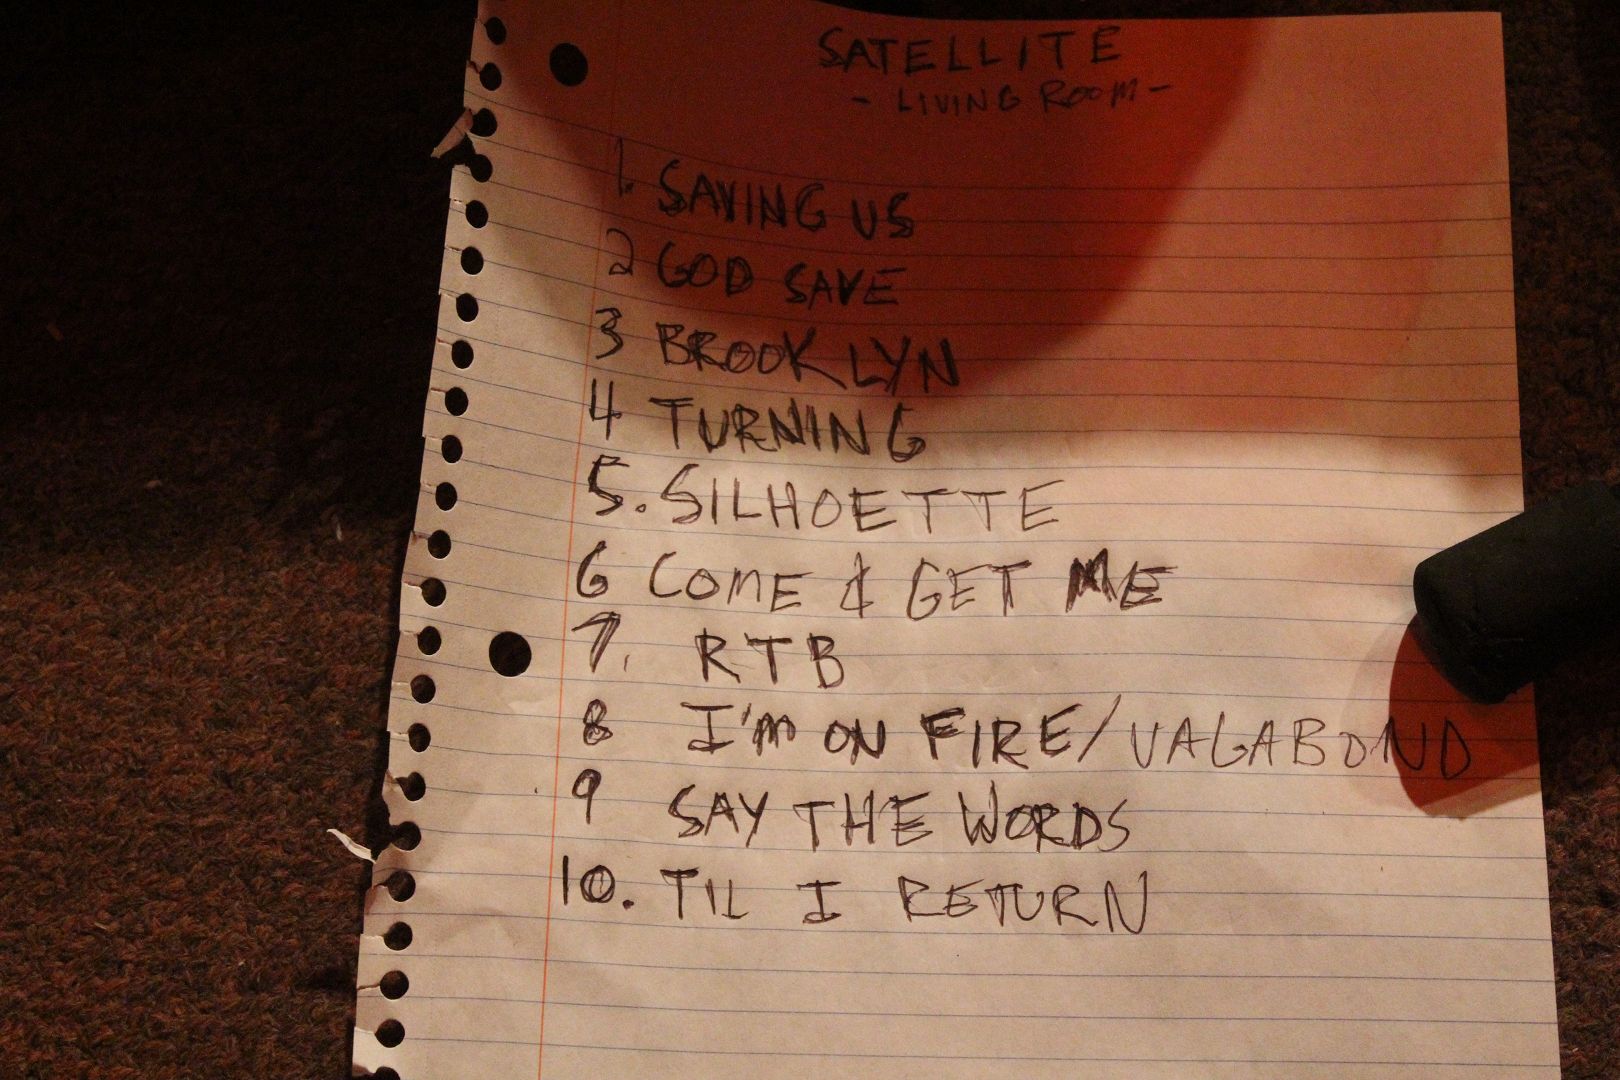 SATELLITE
- LIVING ROOM -
1. SAVING US
2 GOD SAVE
3 BROOKLYN
4 TURNING
5. SILHOETTE
6 COME & GET ME
7. RTB
8 I'M ON FIRE/VAGABOND
9 SAY THE WORDS
10. TIL I RETURN